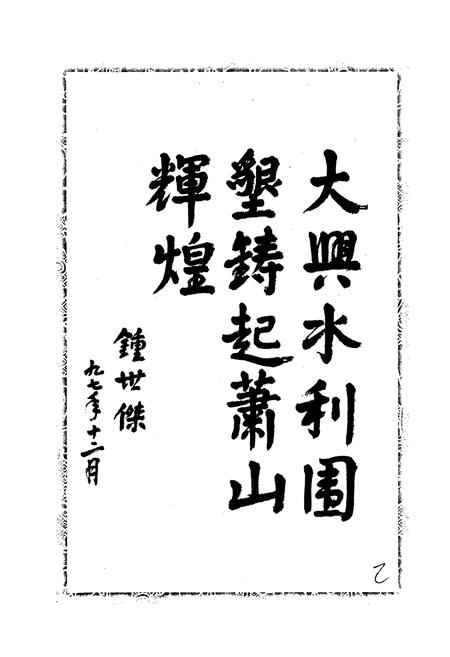 大興水利圍
墾鑄起蕭山
輝煌
鍾世傑
九七年十二月
乙